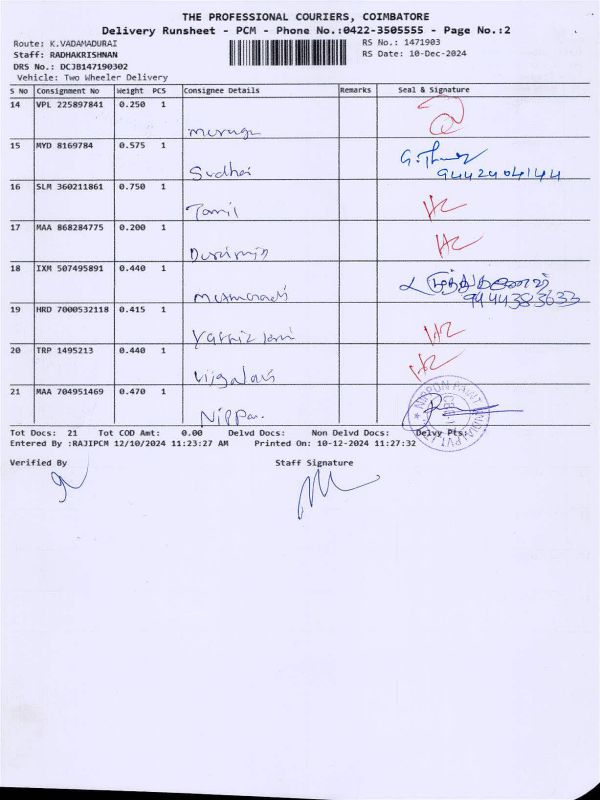 THE PROFESSIONAL COURIERS, COIMBATORE
Delivery Runsheet - PCM - Phone No.:0422-3505555 - Page No.:2
Route: K.VADAMADURAI
RS No.: 1471903
Staff: RADHAKRISHNAN
RS Date: 10-Dec-2024
DRS No.: DCJB147190302
Vehicle: Two Wheeler Delivery
S No Consignment No Weight PCS Consignee Details Remarks Seal & Signature
14 VPL 225897841 0.250 1
Murugu
15 MYD 8169784 0.575 1
Sudhai
9442904144
16 SLM 360211861 0.750 1
Tamil
17 MAA 868284775 0.200 1
18 IXM 507495891 0.440 1
9444383633
19 HRD 7000532118 0.415 1
20 TRP 1495213 0.440 1
21 MAA 704951469 0.470 1
Nippon
NIPPON PAINT
Tot Docs: 21 Tot COD Amt: 0.00 Delvd Docs: Non Delvd Docs: Delvy Pts:
Entered By :RAJIPCM 12/10/2024 11:23:27 AM Printed On: 10-12-2024 11:27:32
Verified By Staff Signature